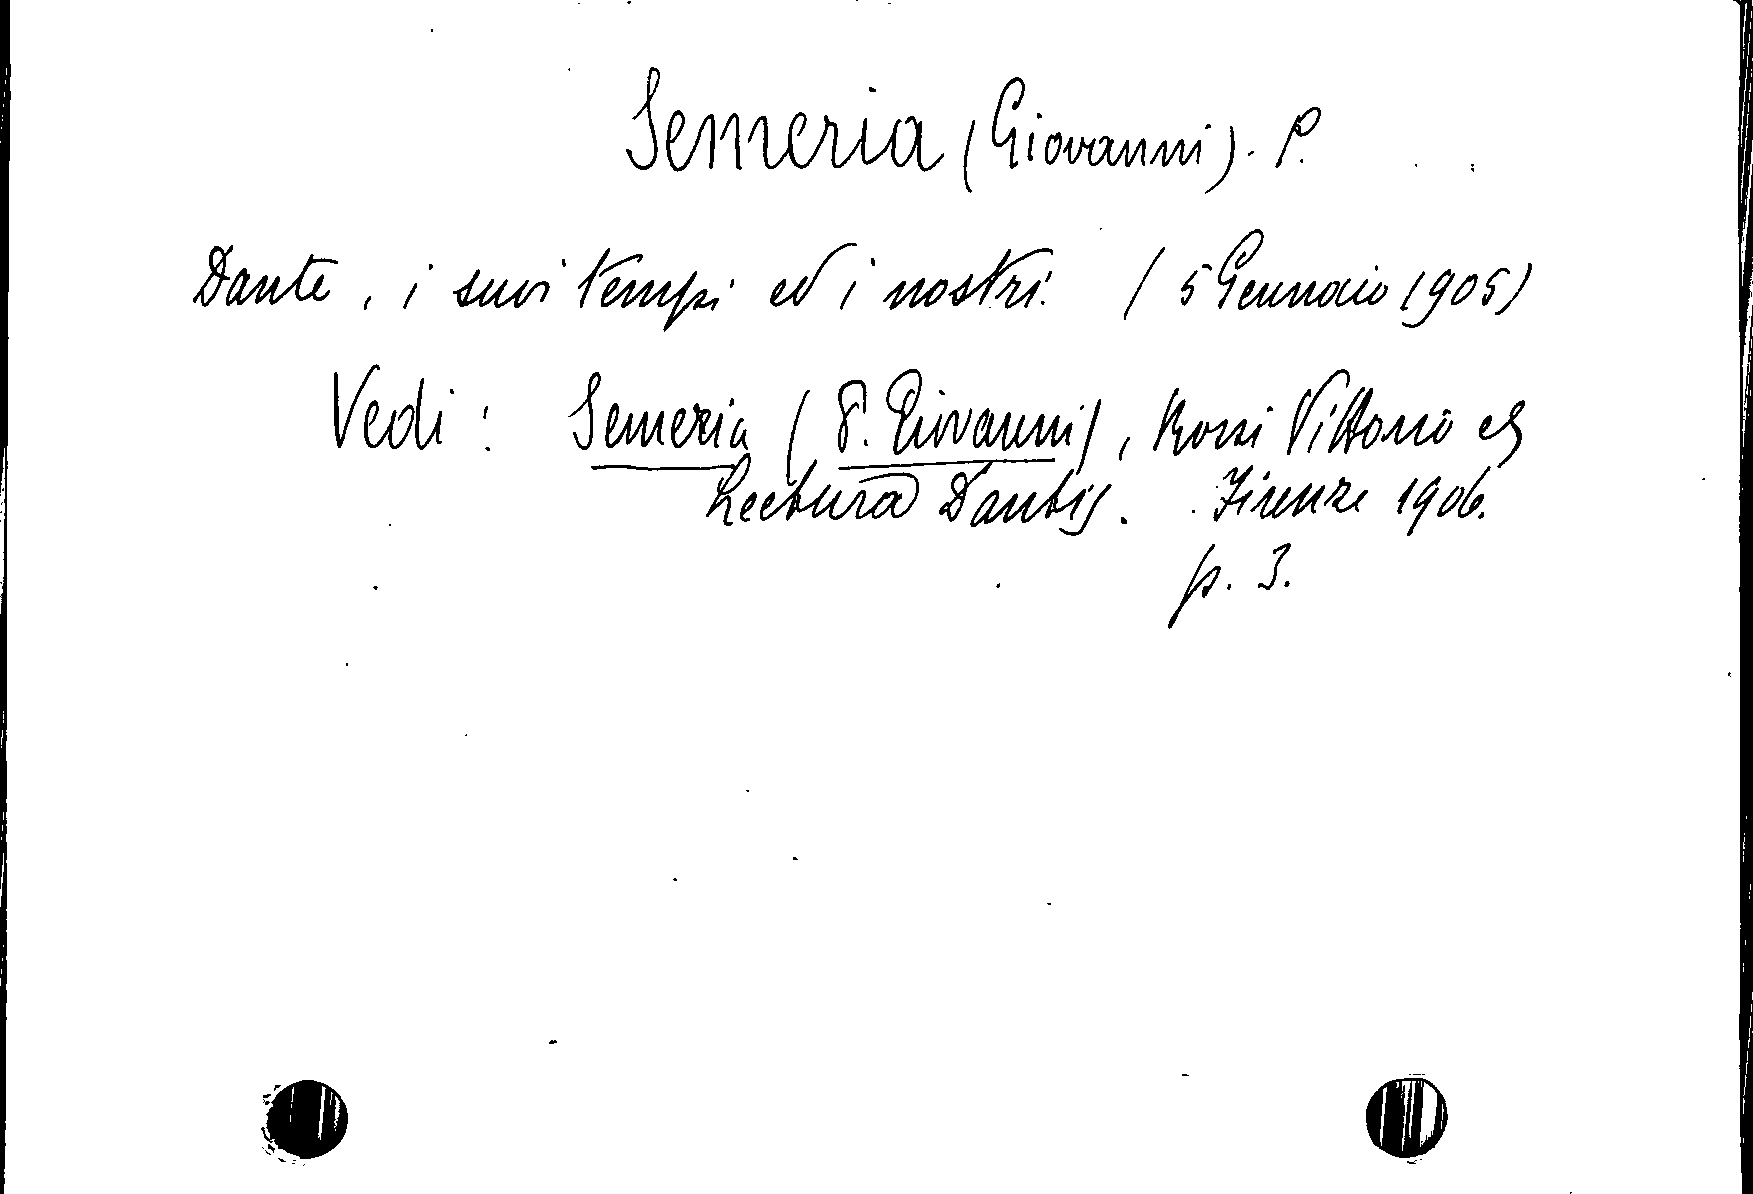 Semeria (Giovanni). P.
Dante, i suoi tempi ed i nostri. (5 Gennaio 1905)
Vedi: Semeria (P. Giovanni), Rossi Vittorio ed
Lectura Dantis. Firenze 1906.
p. 3.